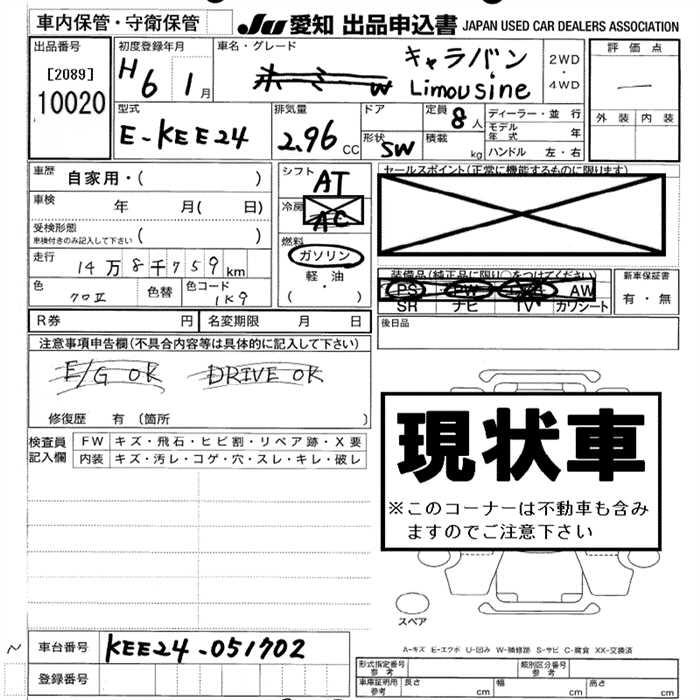 車内保管・守衛保管
JU 愛知 出品申込書 JAPAN USED CAR DEALERS ASSOCIATION
出品番号
[2089]
10020
初度登録年月
H6 1月
車名・グレード
キャラバン
Limousine
2WD
・
4WD
評価点
外装 内装
型式
E-KEE24
排気量
2.96 CC
ドア
形状
SW
定員
8人
積載
kg
ディーラー・並行
モデル年式 年
ハンドル 左・右
車歴
自家用・( )
車検
年 月( 日)
受検形態
車検付きのみ記入して下さい ( )
走行
14万8千759km
色
クロⅡ
色替
色コード
1K9
シフト
AT
冷房
AC
燃料
ガソリン
軽・油
( ・ )
セールスポイント(正常に機能するものに限ります)
装備品(純正品に限り○をつけてください)
PS PW AW
SR ナビ TV カワシート
新車保証書
有・無
R券 円 名変期限 月 日
後日品
注意事項申告欄(不具合内容等は具体的に記入して下さい)
E/G OK DRIVE OK
修復歴 有 (箇所 )
検査員
記入欄
FW キズ・飛石・ヒビ割・リペア跡・X要
内装 キズ・汚レ・コゲ・穴・スレ・キレ・破レ
現状車
※このコーナーは不動車も含み
ますのでご注意下さい
スペア
A-キズ E-エクボ U-凹み W-補修跡 S-サビ C-腐食 XX-交換済
車台番号
KEE24-051702
登録番号
形式指定番号
参考
類別区分番号
参考
車庫証明用
参考
長さ cm 幅 cm 高さ cm